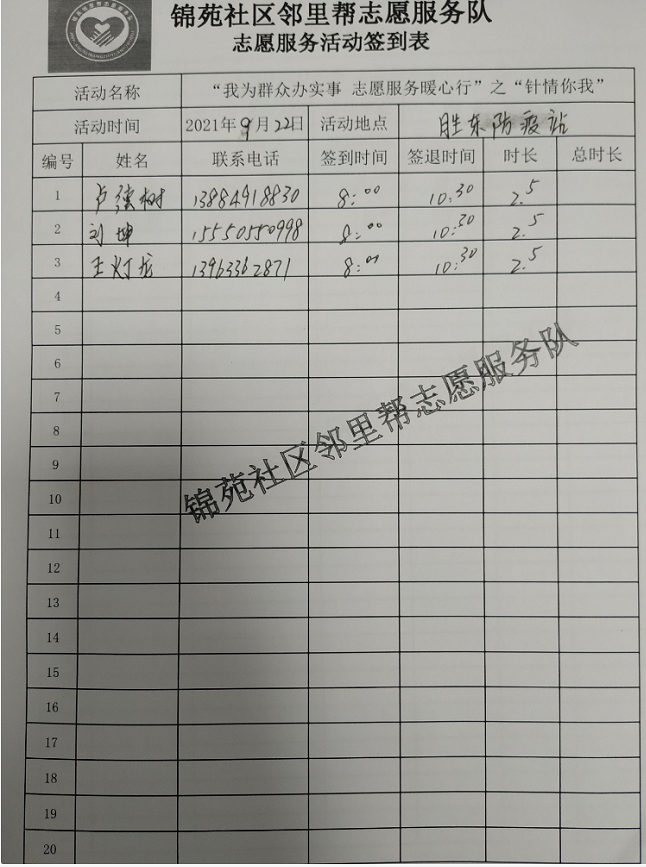 锦苑社区邻里帮志愿服务队
志愿服务活动签到表
活动名称 “我为群众办实事 志愿服务暖心行”之“针情你我”
活动时间 2021年9月22日 活动地点 胜东防疫站
编号 姓名 联系电话 签到时间 签退时间 时长 总时长
1 卢 树 13884918830 8:00 10:30 2.5
2 刘坤 15550550998 8:00 10:30 2.5
3 王灯龙 13963362871 8:00 10:30 2.5
4
5
6
7
8
9
10
11
12
13
14
15
16
17
18
19
20
锦苑社区邻里帮志愿服务队